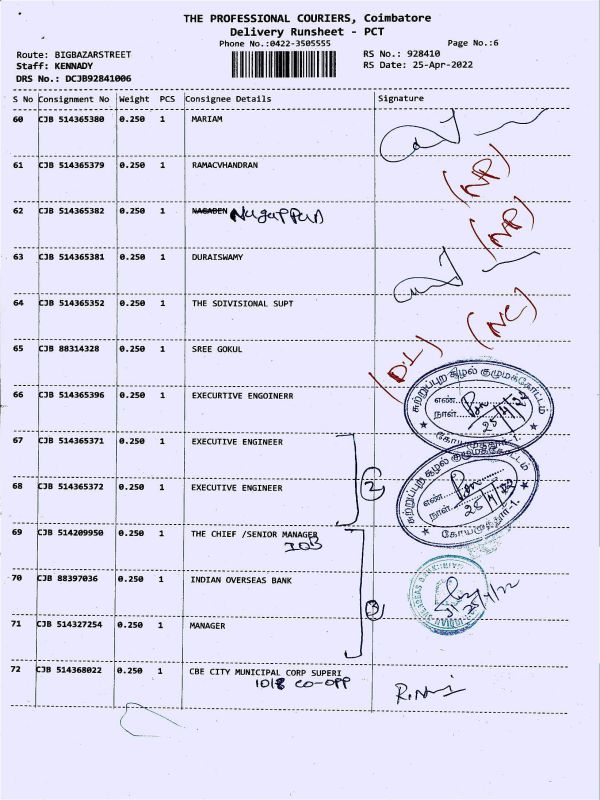 THE PROFESSIONAL COURIERS, Coimbatore
Delivery Runsheet - PCT
Phone No.:0422-3505555
Page No.:6
Route: BIGBAZARSTREET
RS No.: 928410
Staff: KENNADY
RS Date: 25-Apr-2022
DRS No.: DCJB92841006
S No Consignment No Weight PCS Consignee Details Signature
60 CJB 514365380 0.250 1 MARIAM
61 CJB 514365379 0.250 1 RAMACVHANDRAN (NP)
62 CJB 514365382 0.250 1 NAGABEN Nagappan (NP)
63 CJB 514365381 0.250 1 DURAISWAMY
64 CJB 514365352 0.250 1 THE SDIVISIONAL SUPT (NC)
65 CJB 88314328 0.250 1 SREE GOKUL (D.L)
66 CJB 514365396 0.250 1 EXECURTIVE ENGOINERR
சுற்றுப்புற சூழல் குழுமக்கோட்டம்
எண்
நாள் 25/4/22
கோயமுத்தூர்-1.
67 CJB 514365371 0.250 1 EXECUTIVE ENGINEER
2
68 CJB 514365372 0.250 1 EXECUTIVE ENGINEER
சுற்றுப்புற சூழல் குழுமக்கோட்டம்
எண்
நாள் 25/4/22
கோயமுத்தூர்-1.
69 CJB 514209950 0.250 1 THE CHIEF /SENIOR MANAGER
IOB
70 CJB 88397036 0.250 1 INDIAN OVERSEAS BANK
3
25/4/22
71 CJB 514327254 0.250 1 MANAGER
72 CJB 514368022 0.250 1 CBE CITY MUNICIPAL CORP SUPERI
1018 CO-OPP